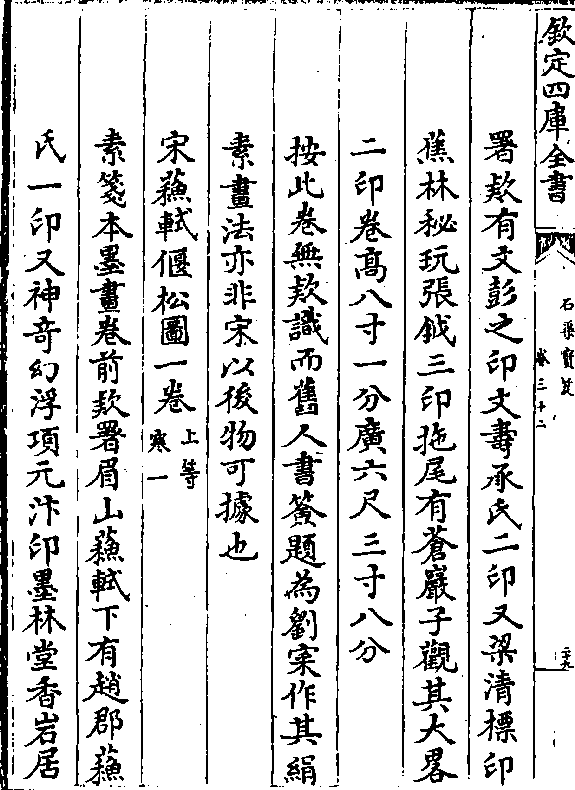 欽定四庫全書
石渠寶笈
卷三十二
二十九
署欵有文彭之印文壽承氏二印又梁清標印
蕉林秘玩張鉞三印拖尾有蒼巖子觀其大畧
二印卷髙八寸一分廣六尺三寸八分
按此卷無欵識而舊人書簽題為劉寀作其絹
素畫法亦非宋以後物可據也
宋蘓軾偃松圖一卷上等寒一
素箋本墨畫卷前欵署眉山蘓軾下有趙郡蘓
氏一印又神奇幻浮項元汴印墨林堂香岩居